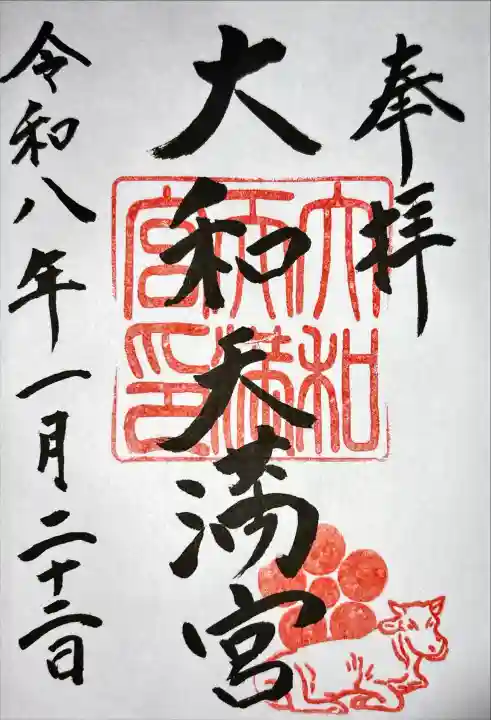 奉拝
大和天満宮
大和天満宮印
令和八年一月二十二日